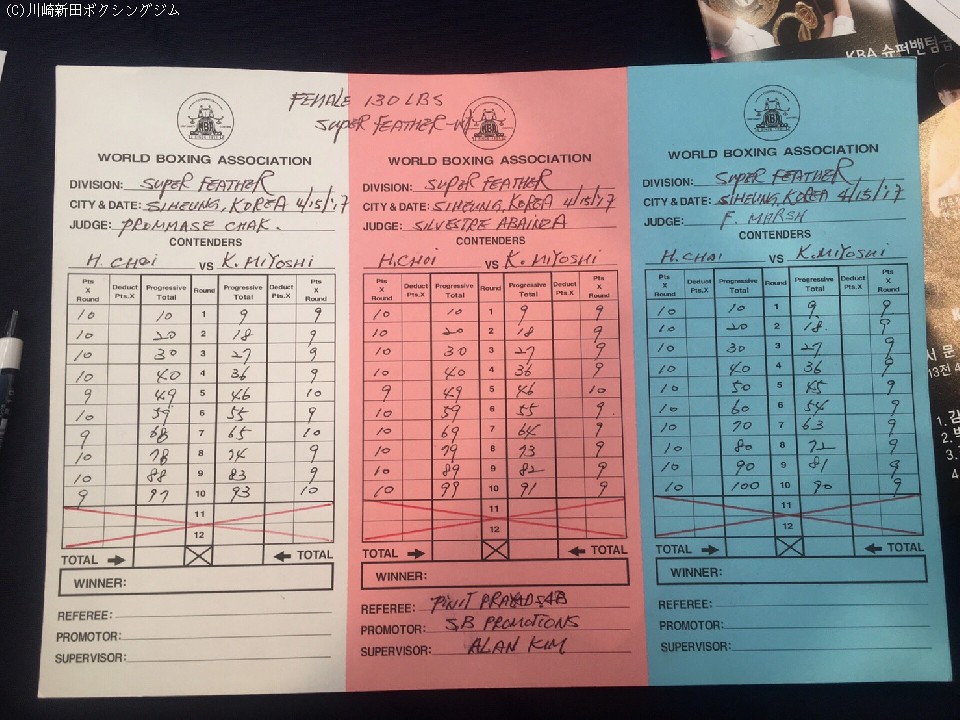 (C)川崎新田ボクシングジム
KBA 슈퍼밴텀급
FEMALE 130 LBS
SUPER FEATHER-W
WORLD BOXING ASSOCIATION
DIVISION: SUPER FEATHER
CITY & DATE: SIHEUNG, KOREA 4/15/17
JUDGE: PROMMASE CHAK.
CONTENDERS
H. CHOI VS K. MIYOSHI
Pts X Round Deduct Pts.X Progressive Total Round Progressive Total Deduct Pts.X Pts X Round
10 10 1 9 9
10 20 2 18 9
10 30 3 27 9
10 40 4 36 9
9 49 5 46 10
10 59 6 55 9
9 68 7 65 10
10 78 8 74 9
10 88 9 83 9
9 97 10 93 10
11
12
TOTAL TOTAL
WINNER:
REFEREE:
PROMOTOR:
SUPERVISOR:
WORLD BOXING ASSOCIATION
DIVISION: SUPER FEATHER
CITY & DATE: SIHEUNG, KOREA 4/15/17
JUDGE: SILVESTRE ABAINZA
CONTENDERS
H. CHOI VS K. MIYOSHI
Pts X Round Deduct Pts.X Progressive Total Round Progressive Total Deduct Pts.X Pts X Round
10 10 1 9 9
10 20 2 18 9
10 30 3 27 9
10 40 4 36 9
9 49 5 46 10
10 59 6 55 9
10 69 7 64 9
10 79 8 73 9
10 89 9 82 9
10 99 10 91 9
11
12
TOTAL TOTAL
WINNER:
REFEREE: PINIT
PROMOTOR: SB PROMOTIONS
SUPERVISOR: ALAN KIM
WORLD BOXING ASSOCIATION
DIVISION: SUPER FEATHER
CITY & DATE: SIHEUNG, KOREA 4/15/17
JUDGE: F. MARSH
CONTENDERS
H. CHOI VS K. MIYOSHI
Pts X Round Deduct Pts.X Progressive Total Round Progressive Total Deduct Pts.X Pts X Round
10 10 1 9 9
10 20 2 18 9
10 30 3 27 9
10 40 4 36 9
10 50 5 45 9
10 60 6 54 9
10 70 7 63 9
10 80 8 72 9
10 90 9 81 9
10 100 10 90 9
11
12
TOTAL TOTAL
WINNER:
REFEREE:
PROMOTOR:
SUPERVISOR:
서 문
13전 4
1. 김
2. 박
3.
4